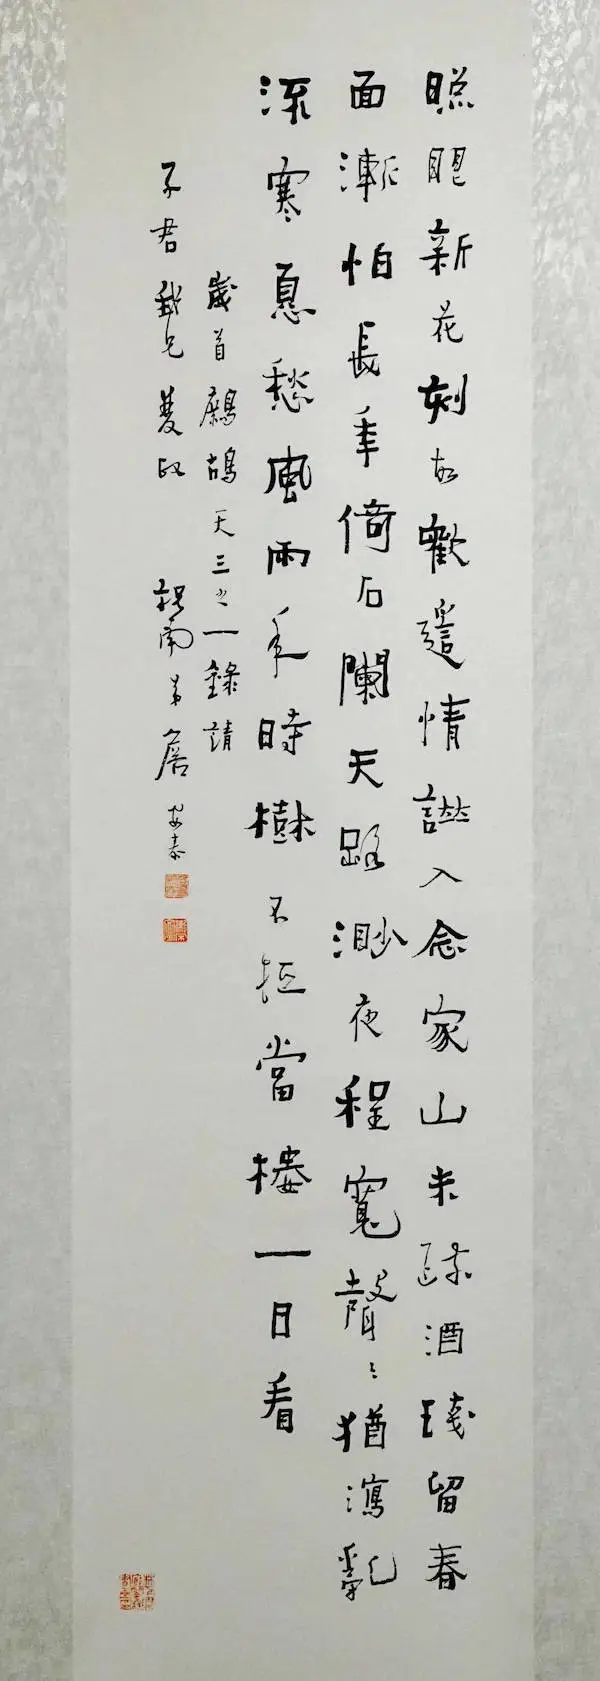 照眼新花刻故歡遙情譜入念家山未疏酒琖留春
面漸怕長年倚石闌天路渺夜程寬聲〻猶瀉亂
流寒息愁風雨年時樹不短當樓一日看
歲首鷓鴣天三之一錄請
子君我兄雙政 祝南弟詹安泰